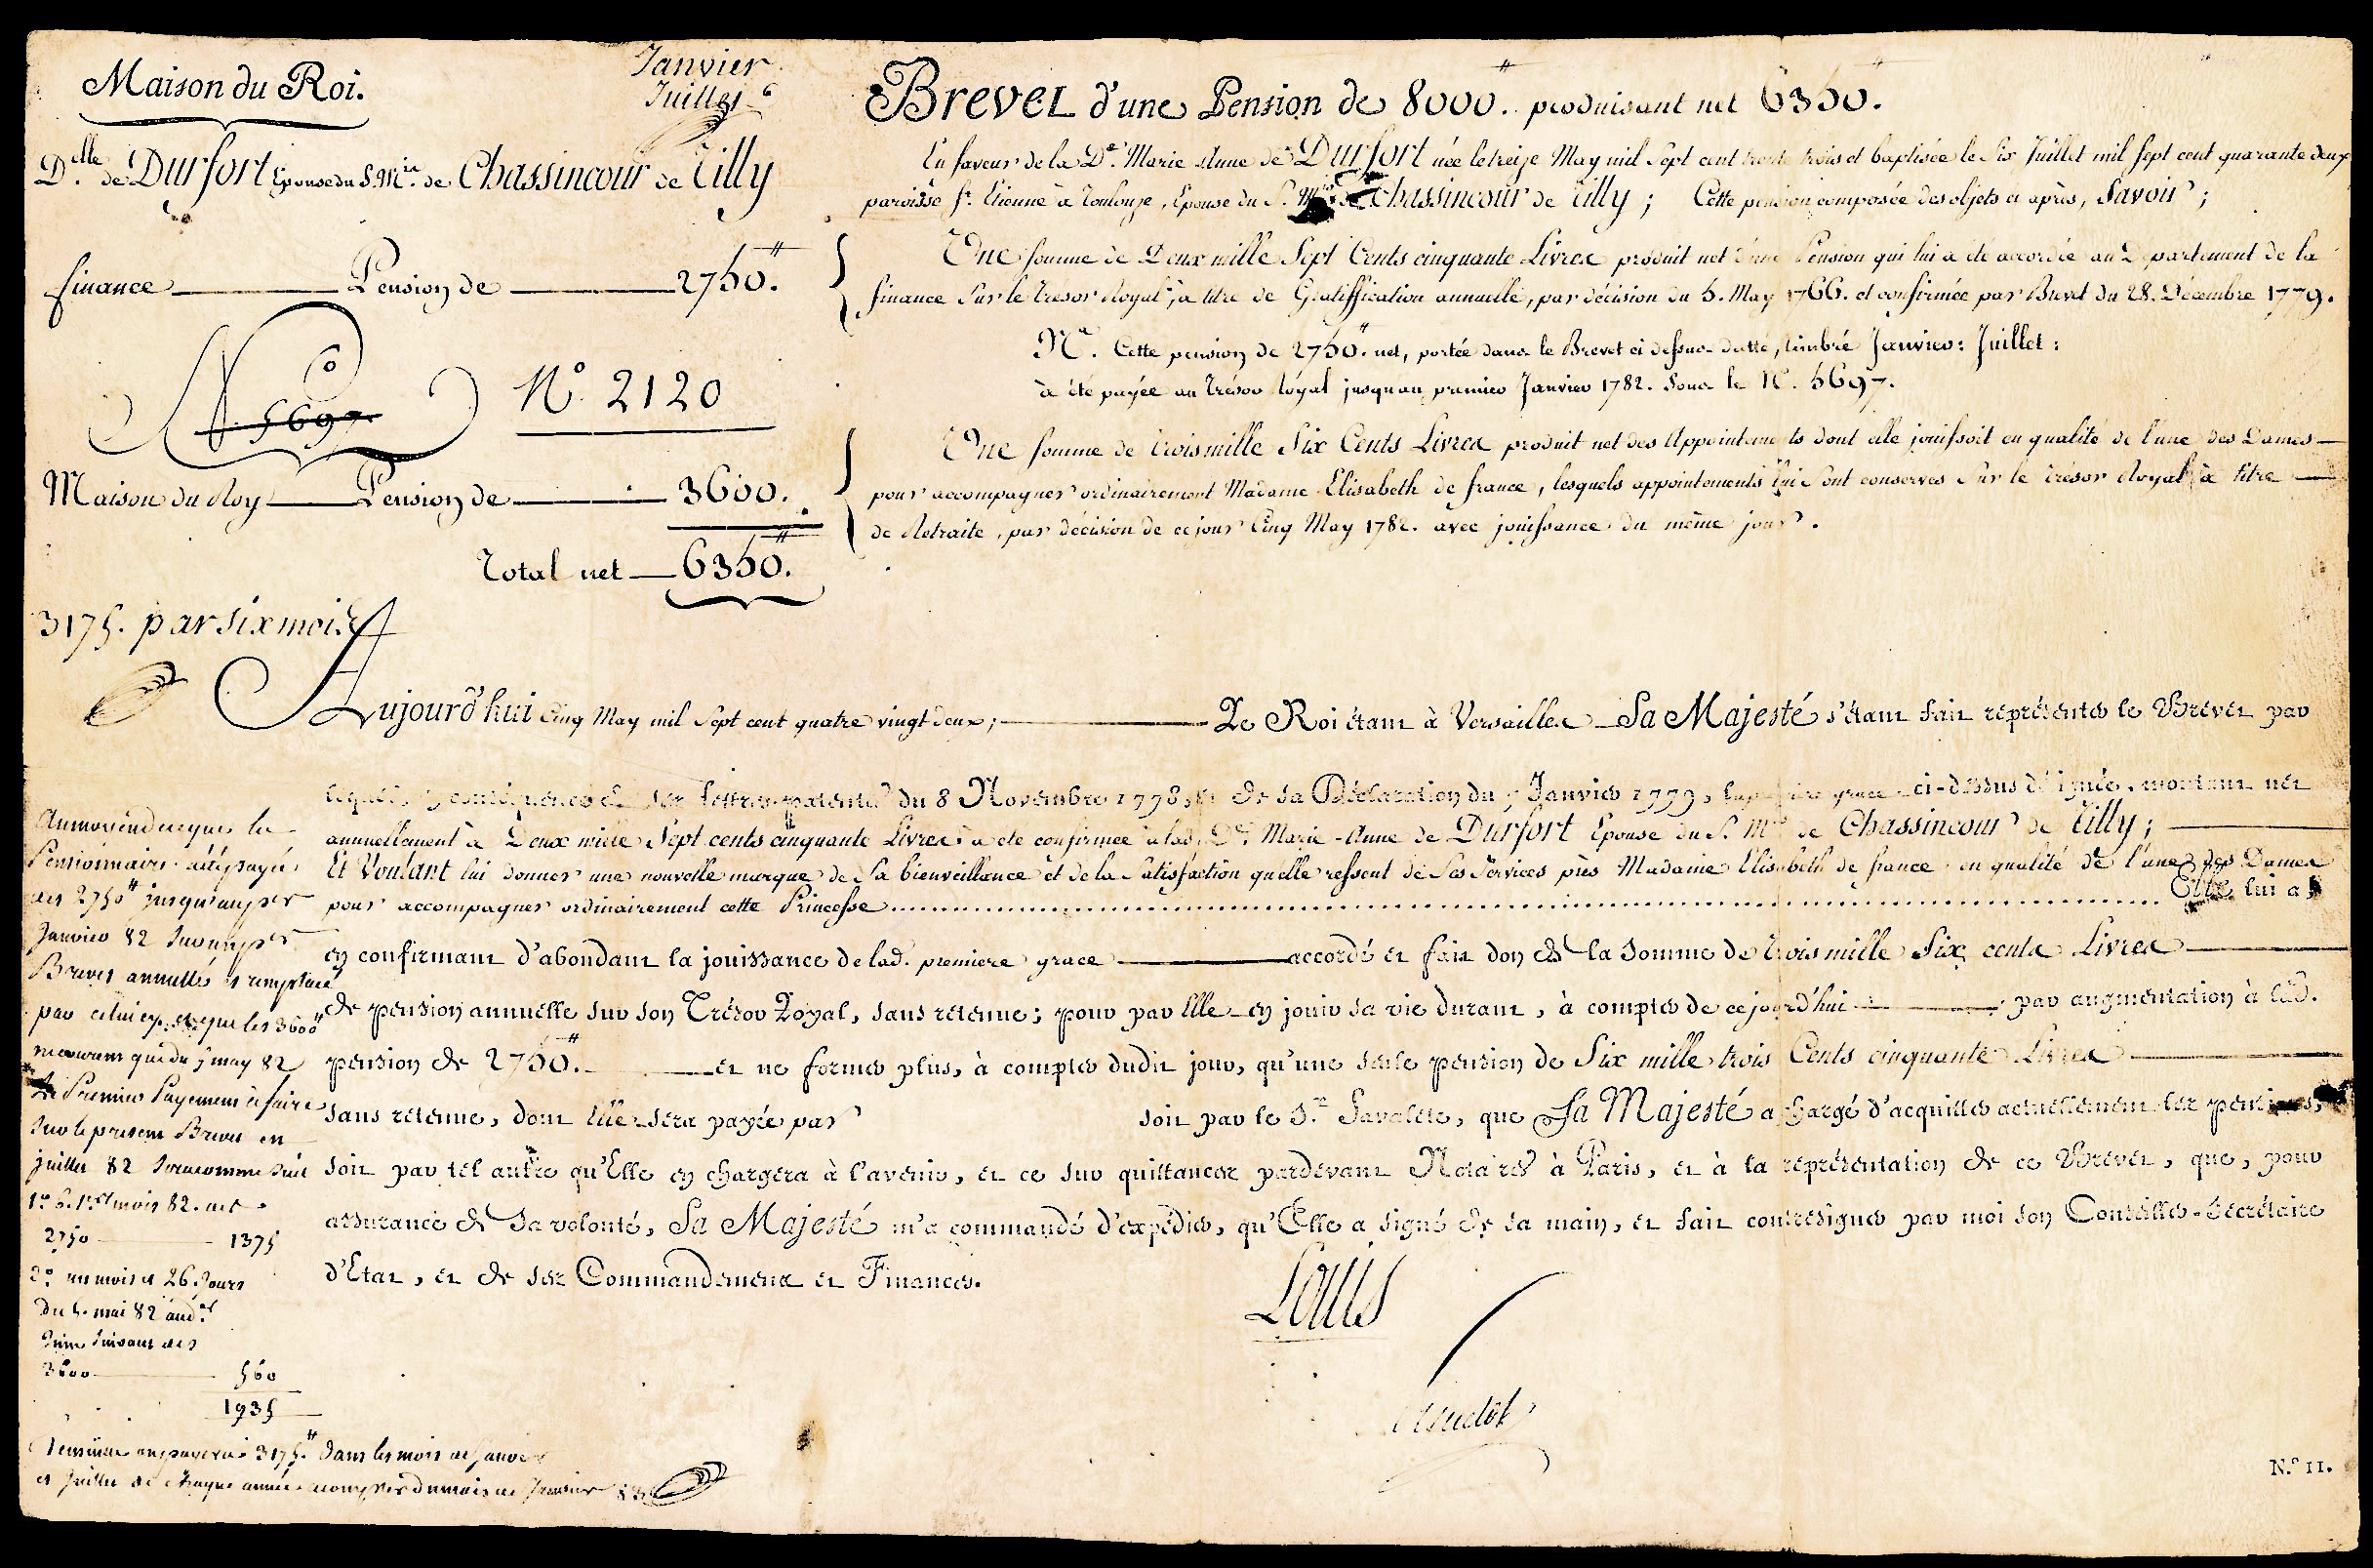 Maison du Roi.
Janvier
Juillet 6
D.elle de Durfort Epouse du S. M.is de Chassincour de Tilly
Finance Pension de 2750.#
N.o 5697
N.o 2120
Maison du Roy Pension de 3600.
Total net 6350.#
3175. par six mois
Brevet d'une Pension de 8000.# produisant net 6350.#
En faveur de la D.e Marie Anne de Durfort née le treize May mil Sept cent trente trois et baptisée le Six Juillet mil sept cent quarante deux
paroisse S.t Etienne à Toulouze, Epouse du S. M.is de Chassincour de Tilly ; Cette pension composée des objets ci après, Savoir ;
Une somme de Deux mille Sept Cents cinquante Livres produit net d'une Pension qui lui a été accordée au Département de la
finance Sur le Tresor Royal, à titre de Gratiffication annuelle, par décision du 5. May 1766. et confirmée par Brevet du 28. Décembre 1779.
N.a Cette pension de 2750.# net, portée dans le Brevet ci dessus datté, timbré Janvier: Juillet:
à été payée au Trésor royal jusqu'au premier Janvier 1782. Sous le N.o 5697.
Une somme de trois mille Six Cents Livres produit net des Appointements dont elle jouissoit en qualité de l'une des Dames
pour accompagner ordinairement Madame Elisabeth de france, lesquels appointements lui sont conservés Sur le trésor Royal à titre
de Retraite, par décision de ce jour Cinq May 1782. avec jouissance du même jour.
Aujourd'hui Cinq May mil Sept cent quatre vingt deux ; Le Roi étant à Versailles Sa Majesté s'étant fait représenter le Brevet par
lequel, en conséquence de ses Lettres-patentes du 8 Novembre 1778, et de sa Déclaration du 7 Janvier 1779, la premiere grace ci-dessus désignée, montant net
annuellement à Deux mille Sept cents cinquante Livres a été confirmée à lad. D.e Marie-Anne de Durfort Epouse du S. M.is de Chassincour de Tilly ;
Et Voulant lui donner une nouvelle marque de Sa bienveillance et de la Satisfaction qu'elle ressent de Ses Services près Madame Elisabeth de france en qualité de l'une des Dames
pour accompagner ordinairement cette Princesse Elle lui a,
en confirmant d'abondant la jouissance de lad. premiere grace accordé et fait don de la somme de trois mille Six cents Livres
de pension annuelle sur son Trésor Royal, sans retenue ; pour par Elle en jouir sa vie durant, à compter de cejourd'hui par augmentation à lad.
pension de 2750.# et ne former plus, à compter dudit jour, qu'une seule pension de Six mille trois Cents cinquante Livres
sans retenue, dont Elle sera payée par soit par le S.r Savalete, que Sa Majesté a chargé d'acquitter actuellement les pensions,
soit par tel autre qu'Elle en chargera à l'avenir, et ce sur quittances pardevant Notaires à Paris, et à la représentation de ce Brevet, que, pour
assurance de sa volonté, Sa Majesté m'a commandé d'expédier, qu'Elle a signé de sa main, et fait contresigner par moi son Conseiller-Secrétaire
d'Etat, et de ses Commandemens et Finances.
Louis
Amelot
Au moyen de ce que la
Pensionnaire a été payée
des 2750# jusqu'au p.er
Janvier 82
Brevet annullé et remplacé
par celui cy, et que les 3600#
ne courent que du 5 may 82
Le Premier Payement à faire
Sur le present Brevet en
juillet 82 Sera comme Suit
1.o 6. p.ers mois 82. net
2750 1375
2.o un mois et 26. Jours
Du 5. mai 82
Suivant des
3600 560
1935
Ensuite on payera 3175.# Dans les mois de Janvier
et Juillet de chaque année
N.o 11.